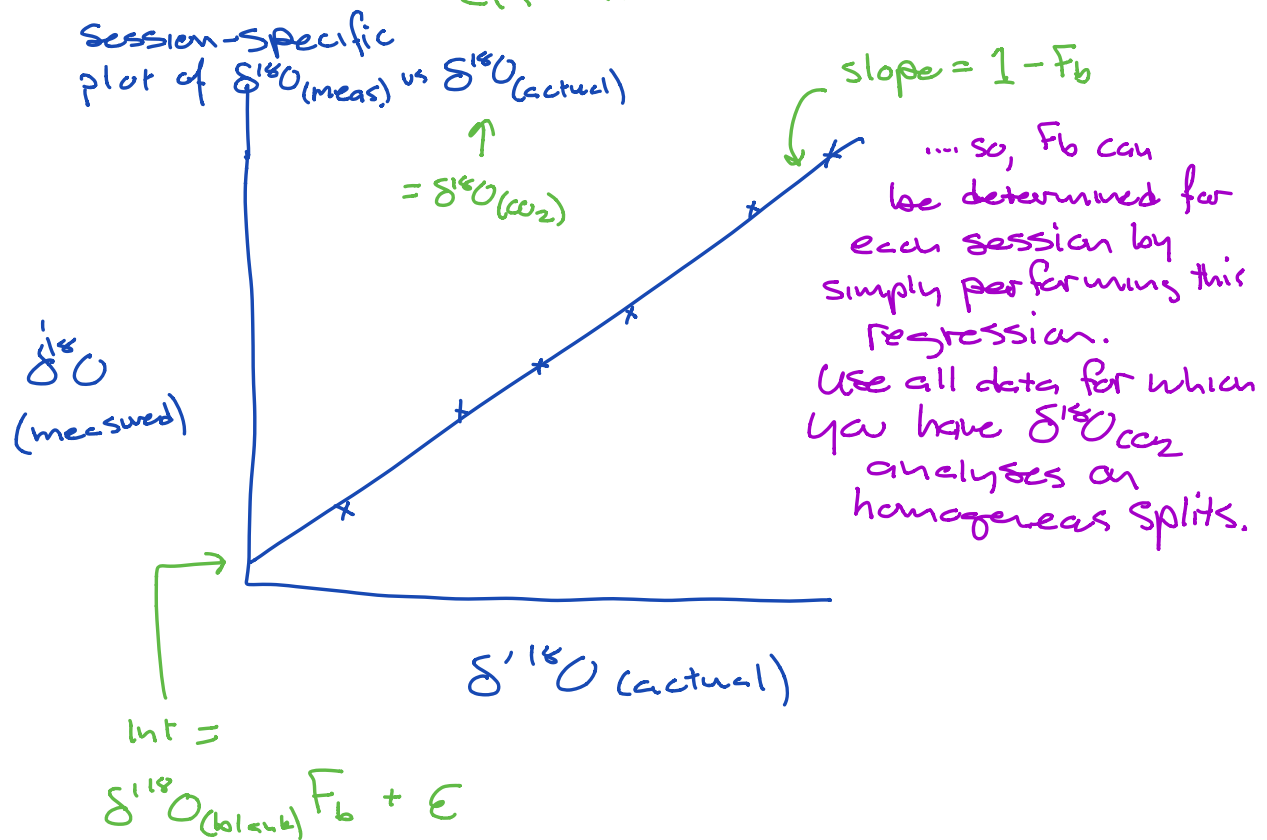 Session-specific
plot of δ¹⁸O(meas.) vs δ¹⁸O(actual)
↑
= δ¹⁸O(CO₂)
slope = 1 - Fb
.... so, Fb can
be determined for
each session by
simply performing this
regression.
Use all data for which
you have δ¹⁸O CO₂
analyses on
homogeneas splits.
δ'¹⁸O
(measured)
δ'¹⁸O (actual)
Int =
δ'¹⁸O(blank) Fb + ε